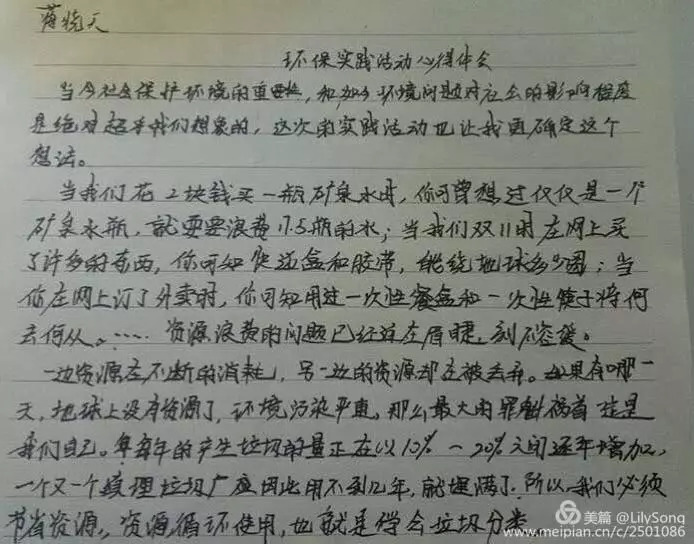 蒋晓天
环保实践活动心得体会
当今社会保护环境的重要性,和如今环境问题对社会的影响程度
是绝对超乎我们想象的,这次的实践活动也让我更确定这个
想法。
当我们花2块钱买一瓶矿泉水时,你可曾想过仅仅是一个
矿泉水瓶,就要要浪费17.5瓶的水;当我们双11用在网上买
了许多的东西,你可知快递盒和胶带,能绕地球多少圈;当
你在网上订了外卖时,你可知用过一次性餐盒和一次性筷子将何
去何从。……资源浪费的问题已经迫在眉睫,刻不容缓。
一边资源在不断的消耗,另一边的资源却在被丢弃。如果有哪一
天,地球上没有资源了,环境污染严重,那么最大的罪魁祸首 这是
我们自己。每年的产生垃圾的量正在以10%~20%之间逐年增加,
一个又一个填埋垃圾厂应用不到几年,就埋满了,所以我们必须
节省资源,资源循环使用,也就是学会垃圾分类
美篇 @LilySong
www.meipian.cn/c/2501086